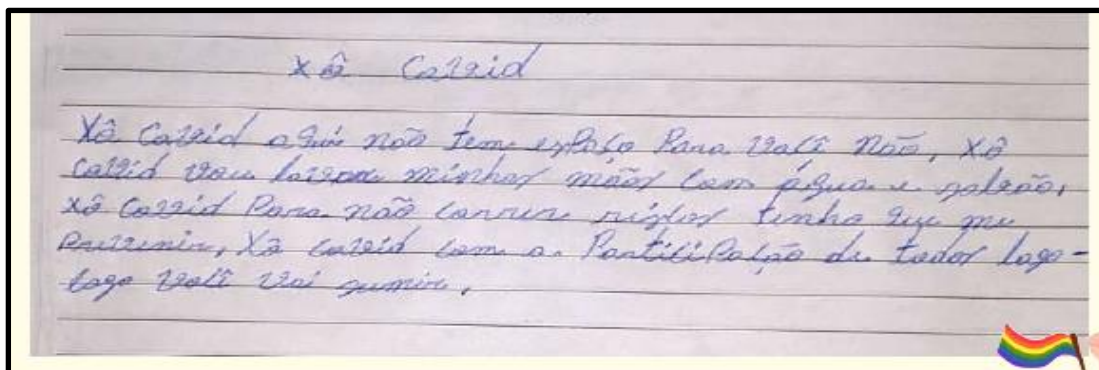 Xô Covid
Xô Covid aqui não tem espaço Para você não, Xô
Covid vou lavar minhas mãos com água e sabão,
xô Covid Para não correr riscos tenho que me
Prevenir, Xô covid com a Participação de todos logo-
logo você vai sumir.